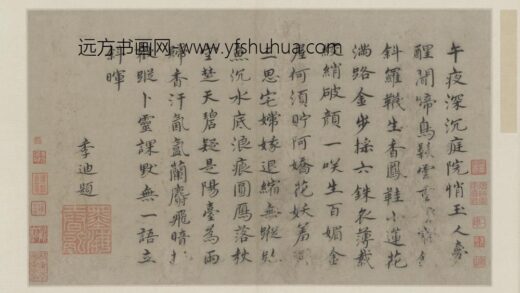 远方书画网：www.yfshuhua.com
午夜深沉庭院悄玉人夢
醒聞啼鳥鬆雲
斜羅襪生香鳳鞋小蓮花
滿路金步搖六銖衣薄裁
綃破顏一咲生百媚金
屋何須貯阿嬌花妖
三思宅嫦娥退縮無蹤跡
魚沉水底浪痕圓鴈落秋
空楚天碧疑是陽臺為雨
歸香汗氤氳蘭麝飛暗
蹤卜靈課默無一語立
斜暉
李迪題